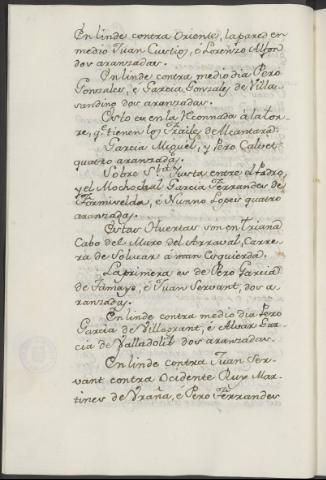 En linde contra Oriente, la pared en
medio Juan Curtios, é Lorenzo Alfon
dos aranzadas.
En linde contra medio dia Pero
Gonzales, é Garcia Gonzalez de Villa
sandino dos aranzadas.
Esto es en la Neconnada á la tor
re, q.e tienen los Frailes de Alcantara.
Garcia Miguel, y Pero Calvet
quatro aranzadas.
Sobre S.ta Justa entre el Prado,
y el Mochachal Garcia Ferrandez de
Formivelda, é Nunno Lopes quatro
aranzadas.
Estas Huertas son en Triana
Cabo del Muro del Arraval, Carre
ra de Solucar á man Esquierda.
La primera es de Pero Garcia
de Tamayo, é Juan Servant, dos a
ranzadas.
En linde contra medio dia Pero
Garcia de Villagrant, é Alvar Gar
cia de Valladolit dos aranzadas.
En linde contra Juan Ser
vant contra Ocidente Ruy Mar
tines de Uraña, é Pero Ferrandes